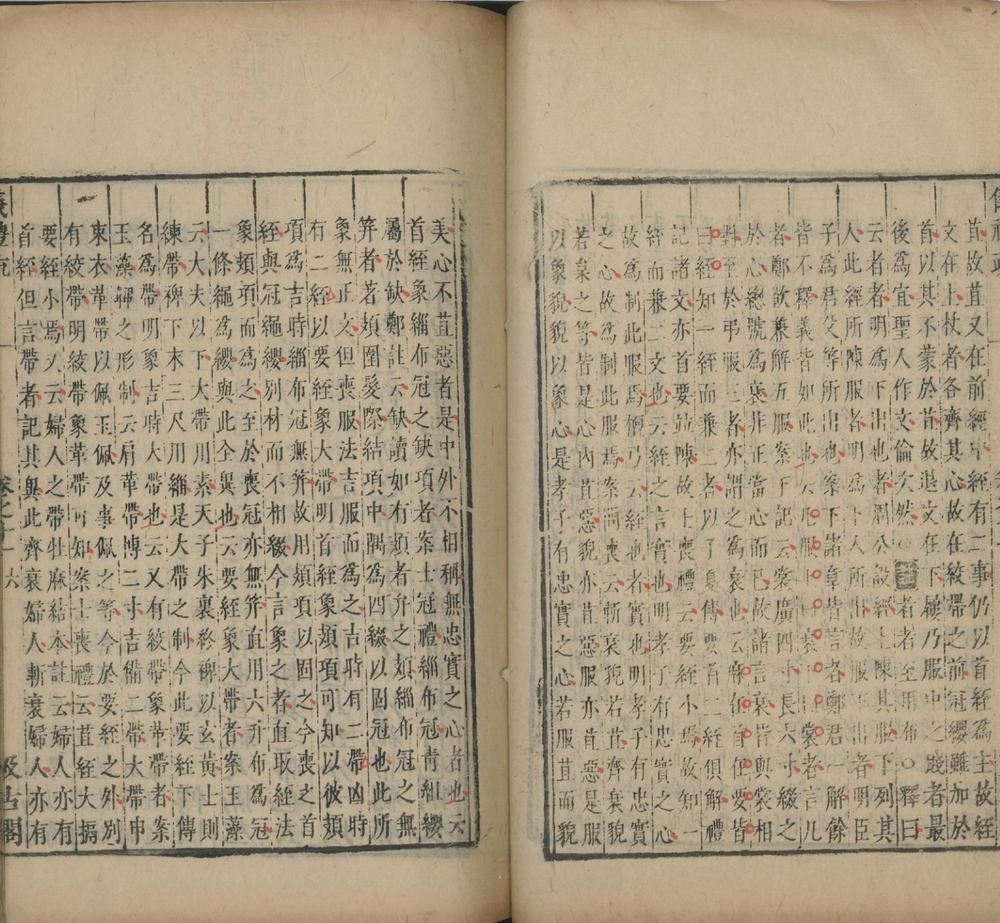 苴故苴又在前絰中絰有二事仍以首絰為主故絰
文在上杖者各齊其心故在絞帶之前冠纓雖加於
首以其不蒙於首故退文在下屨乃服中之賤者最
後為宜聖人作文倫次然○註者者至用布○釋曰
云者者明為下出也者周公設經上陳其服下列其
人此經所陳服者明為下人所出故服下出者明臣
子為君父等所出也案下諸章皆言者鄭君一解餘
皆不釋義皆如此也云凡服上曰衰下曰裳者言凡
者鄭欲兼解五服案下記云衰廣四寸長六寸綴之
於心總號為衰非正當心而已故諸言衰皆與裳相
對至於弔服三者亦謂之為衰也云麻在首在要皆
曰絰知一絰而兼二者以子夏傳要首二絰俱解禮
記諸文亦首要竝陳故士喪禮云要絰小焉故知一
絰而兼二文也云絰之言實也明孝子有忠實之心
故為制此服焉檀弓云絰也者實也明孝子有忠實
之心故為制此服焉案問喪云斬衰貌若苴齊衰貌
若枲之等皆是心內苴惡貌亦苴惡服亦苴惡是服
以象貌貌以象心是孝子有忠實之心若服苴而貌
美心不苴惡者是中外不相稱無忠實之心者也云
首絰象緇布冠之缺項者案士冠禮緇布冠青組纓
屬於缺鄭註云缺讀如有頍者弁之頍緇布冠之無
笄者若頍圍髮際結項中隅為四綴以固冠也此所
象無正文但喪服法吉服而為之吉時有二帶凶時
有二絰以要絰象大帶明首絰象頍項可知以彼頍
項為吉時緇布冠無笄故用頍項以固之今喪之首
絰與冠繩纓別材而不相綴今言象之者直取絰法
象頍項而為之至於喪冠亦無笄直用六升布為冠
一條繩為纓與此全異也云要絰象大帶者案玉藻
云大夫以下大帶用素天子朱裏終裨以玄黃士則
練帶裨下末三尺用緇是大帶之制今此要絰下傳
名為帶明象吉時大帶也云又有絞帶象革帶者案
玉藻韠之形制云肩革帶博二寸吉備二帶大帶申
束衣革帶以佩玉佩及事佩之等今於要絰之外別
有絞帶明絞帶象革帶可知案士喪禮云苴絰大搹
要絰小焉又云婦人之帶牡麻結本註云婦人亦有
首絰但言帶者記其異此齊衰婦人斬衰婦人亦有
儀禮疏 卷之十一 六 汲古閣